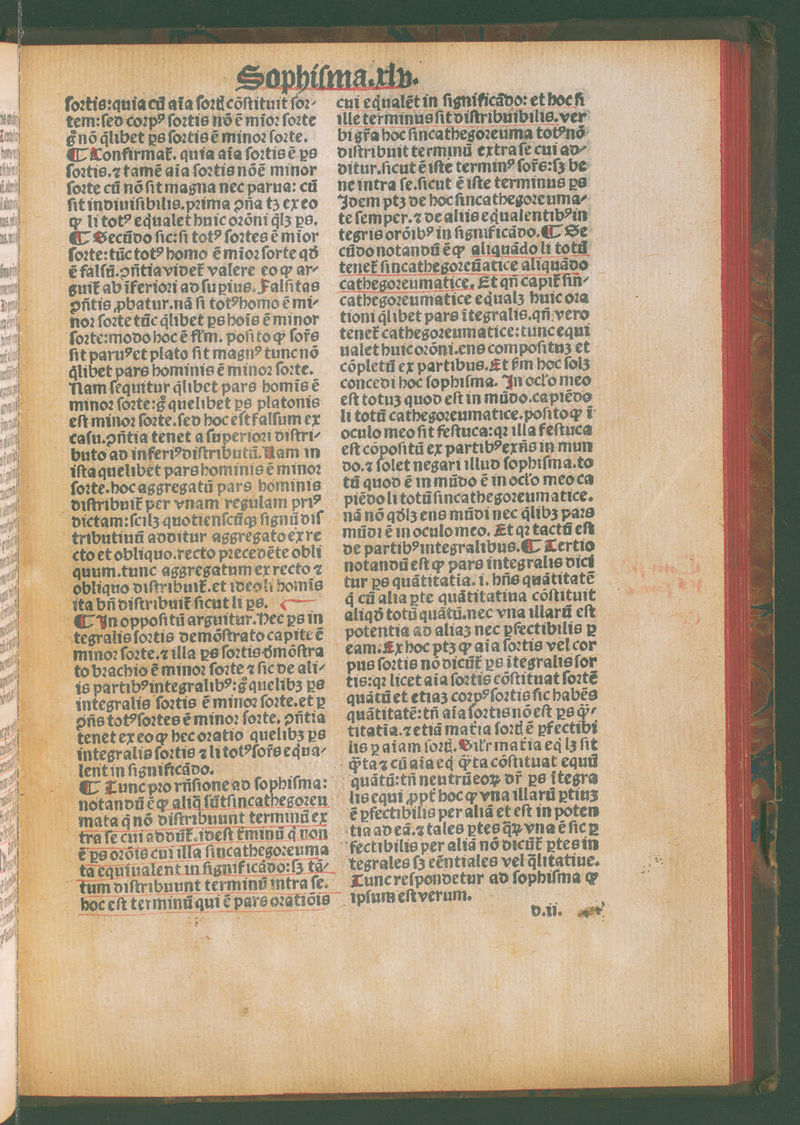 Sophiſma.xlv.
ſoꝛtis:quia cū aīa ſoꝛtꝭ cōſtituit ſoꝛ⸗
tem:ſed coꝛpꝰ ſoꝛtis nō ē mīoꝛ ſoꝛte
g̊ nō q̇libet ps ſoꝛtis ē minoꝛ ſoꝛte.
¶ Confirmat̄. quia aīa ſoꝛtis ē ps
ſoꝛtis.⁊ tamē aīa ſoꝛtis nō ē minor
ſoꝛte cū nō ſit magna nec parua: cū
ſit indiuiſibilis.pꝛima ꝯña tꝫ ex eo
ꝙ li totꝰ equalet huic oꝛōni q̇lꝫ ps.
¶ Secūdo ſic:ſi totꝰ ſoꝛtes ē mīor
ſoꝛte:tūc totꝰ homo ē mīoꝛ ſorte qd̄
ē falſū.ꝯñtia videt̄ valere eo ꝙ ar⸗
guit̄ ab īferioꝛi ad ſupius. Falſitas
ꝯñtis ꝓbatur.nā ſi totꝰ homo ē mi⸗
noꝛ ſoꝛte tūc q̇libet ps hoīs ē minor
ſoꝛte:modo hoc ē flm̄. poſito ꝙ ſoꝛs
ſit paruꝰ et plato ſit magnꝰ tunc nō
q̇libet pars hominis ē minoꝛ ſoꝛte.
Nam ſequitur q̇libet pars homīs ē
minoꝛ ſoꝛte:g̊ quelibet ps platonis
eſt minoꝛ ſoꝛte.ſed hoc eſt falſum ex
caſu.ꝯñtia tenet a ſuperioꝛi diſtri⸗
buto ad inferiꝰ diſtributū.Nam in
iſta quelibet pars hominis ē minoꝛ
ſoꝛte.hoc aggregatū pars hominis
diſtribuit̄ per vnam regulam priꝰ
dictam:ſcilꝫ quotienſcūqꝫ ſignū diſ
tributiuū additur aggregato ex re
cto et obliquo.recto pꝛecedēte obli
quum.tunc aggregatum ex recto ⁊
obliquo diſtribuit̄.et ideo li homīs
ita bñ diſtribuit̄ ſicut li ps.
¶ In oppoſitū arguitur.Hec ps in
tegralis ſoꝛtis demōſtrato capite ē
minoꝛ ſoꝛte.⁊ illa ps ſoꝛtis dmōſtra
to bꝛachio ē minoꝛ ſoꝛte ⁊ ſic de ali⸗
is partibꝰ integralibꝰ:g̊ quelibꝫ ps
integralis ſoꝛtis ē minoꝛ ſoꝛte.et ꝑ
ꝯñs totꝰ ſoꝛtes ē minoꝛ ſoꝛte. ꝯñtia
tenet ex eo ꝙ hec oꝛatio quelibꝫ ps
integralis ſoꝛtis ⁊ li totꝰ ſoꝛs equa⸗
lent in ſignificādo.
¶ Tunc pꝛo rñſione ad ſophiſma:
notandū ē ꝙ aliq̄ ſūt ſincathegoꝛeu
mata q̄ nō diſtribuunt terminū ex
tra ſe cui addūt̄.ideſt t̄minū q̇ non
ē ps oꝛōis cui illa ſincathegoꝛeuma
ta equiualent in ſignificādo:ſꝫ tā⸗
tum diſtribuunt terminū intra ſe.
hoc eſt terminū qui ē pars oꝛatiōis
cui equalēt in ſignificādo: et hoc ſi
ille terminus ſit diſtribuibilis.ver
bi gr̄a hoc ſincathegoꝛeuma totꝰ nō
diſtribuit terminū extra ſe cui ad⸗
ditur.ſicut ē iſte terminꝰ ſoꝛs:ſꝫ be
ne intra ſe.ſicut ē iſte terminus ps
Idem ptꝫ de hoc ſincathegoꝛeuma⸗
te ſemper.⁊ de aliis equalentibꝰ in
tegris oꝛōibꝰ in ſignificādo.¶ Se
cūdo notandū ē ꝙ aliquādo li totū
tenet̄ ſincathegoꝛeūatice aliquādo
cathegoꝛeumatice. Et qñ capit̄ ſin⸗
cathegoꝛeumatice equalꝫ huic oꝛa
tioni q̇libet pars ītegralis.qñ vero
tenet̄ cathegoꝛeumatice:tunc equi
ualet huic oꝛōni.ens compoſitūꝫ et
cōpletū ex partibus.Et ẜm hoc ſolꝫ
concedi hoc ſophiſma. In oclo meo
eſt totuꝫ quod eſt in mūdo.capiēdo
li totū cathegoꝛeumatice.poſito ꝙ ī
oculo meo ſit feſtuca:qꝛ illa feſtuca
eſt cōpoſitū ex partibꝰ exñs in mun
do.⁊ ſolet negari illud ſophiſma.to
tū quod ē in mūdo ē in oclo meo ca
piēdo li totū ſincathegoꝛeumatice.
nā nō qd̓lꝫ ens mūdi nec q̇libꝫ paꝛs
mūdi ē in oculo meo. Et qꝛ tactū eſt
de partibꝰ integralibus.¶ Tertio
notandū eſt ꝙ pars integralis dici
tur ps quātitatīa. i. hñs quātitatē
q̄ cū alia pte quātitatiua cōſtituit
aliqd̓ totū quātū.nec vna illarū eſt
potentia ad aliaꝫ nec ꝑfectibilis ꝑ
eam.Ex hoc ptꝫ ꝙ aīa ſoꝛtis vel cor
pus ſoꝛtis nō dicūt̄ ps ītegralis ſor
tis:qꝛ licet aīa ſoꝛtis cōſtituat ſoꝛtē
quātū et etiaꝫ coꝛpꝰ ſoꝛtis ſic habēs
quātitatē:tñ aīa ſoꝛtis nō eſt ps q̄⸗
titatīa.⁊ etiā mat̄ia ſoꝛtꝭ ē ꝑfectibi
lis ꝑ aīam ſoꝛtꝭ. Silr mat̄ia eq̇ lꝫ ſit
q̄ta ⁊ cū aīa eq̇ q̄ta cōſtituat equū
quātū:tñ neutrū eoꝝ dr̄ ps ītegra
lis equi ꝓpt̄ hoc ꝙ vna illarū ptiuꝫ
ē ꝑfectibilis per aliā et eſt in poten
tia ad eā.⁊ tales ptes q̄ꝝ vna ē ſic ꝑ
fectibilis per aliā nō dicūt̄ ptes in
tegrales ſꝫ eēntiales vel q̄litatiue.
Tunc reſpondetur ad ſophiſma ꝙ
ipſum eſt verum.
D.ii.